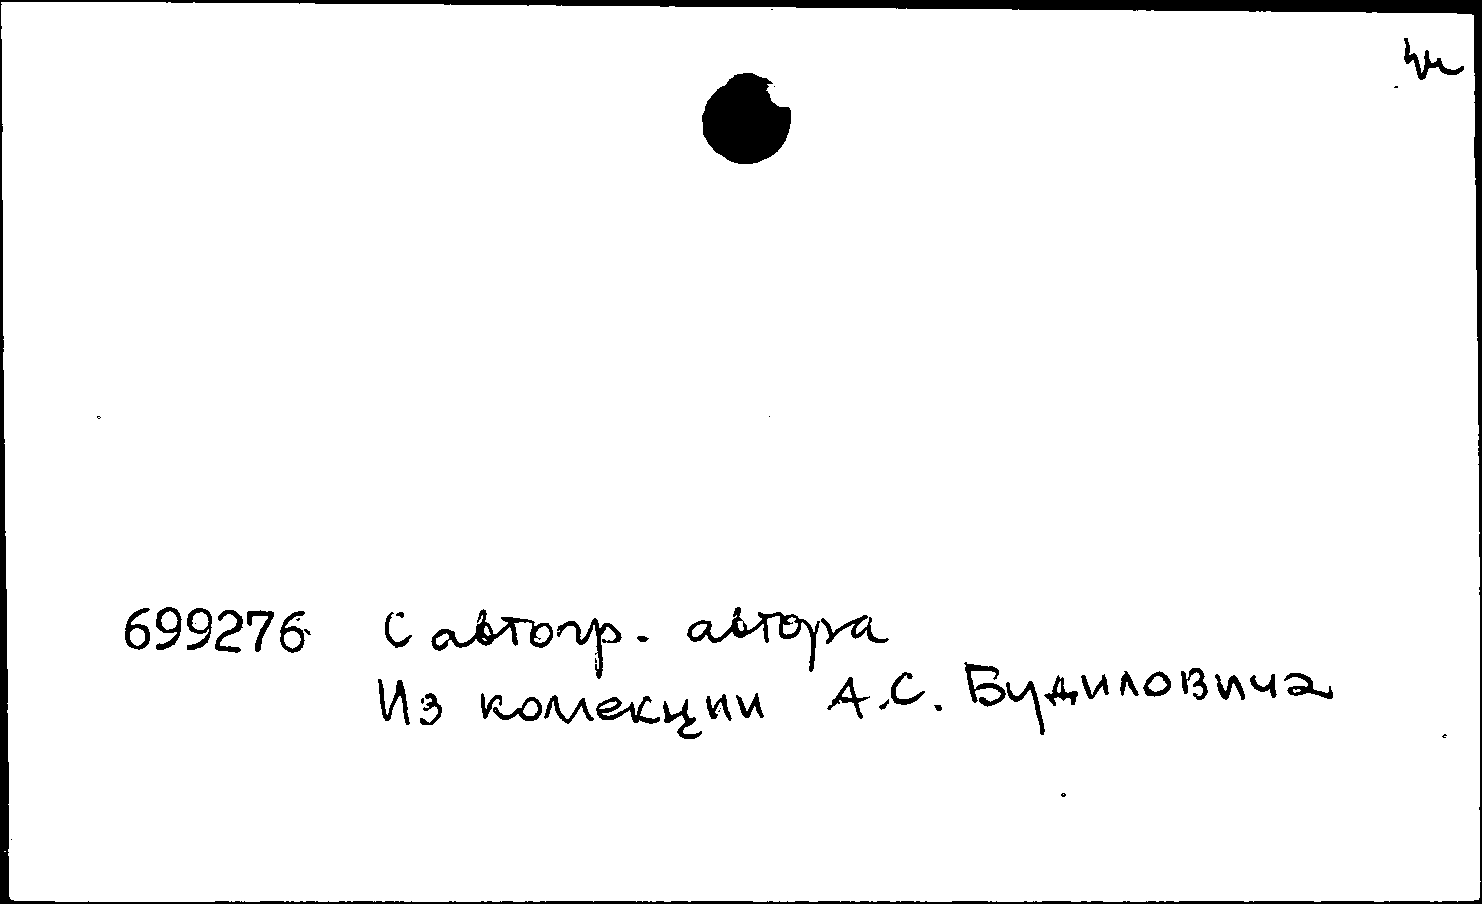 699276 С автогр. автора
Из коллекции А.С. Будиловича